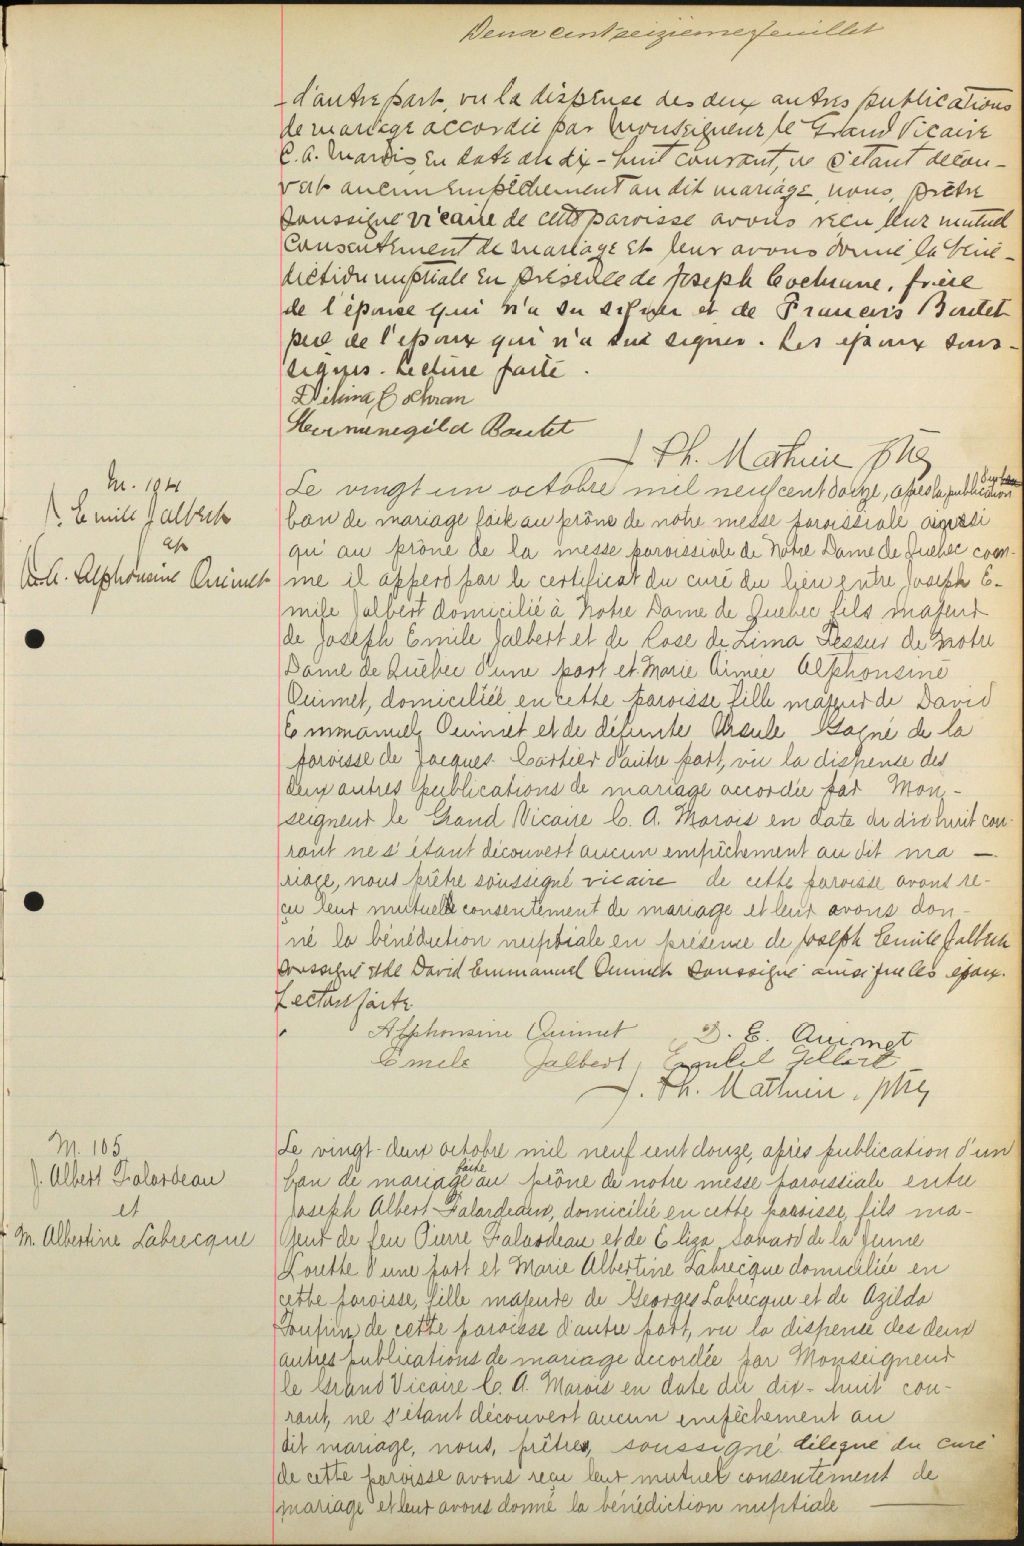 Deux cent seizième feuillet
- d'autre part, vu la dispense des deux autres publications
de mariage accordée par Monseigneur le Grand Vicaire
C. A. Marois, en date du dix-huit courant, ne s'étant décou-
vert aucun empêchement au dit mariage, nous, prêtre
soussigné vicaire de cette paroisse avons reçu leur mutuel
consentement de mariage et leur avons donné la béné-
diction nuptiale en présence de Joseph Cochrane, frère
de l'épouse qui n'a su signer et de François Boutet
père de l'époux qui n'a su signer. Les époux sous-
signés. Lecture faite.
Délima Cochran
Herménégild Boutet
J. Ph. Mathieu ptre
M. 104
J. Emile Jalbert
et
M. A. Alphonsine Ouimet
Le vingt un octobre mil neuf cent douze, après la publication
ban de mariage faite au prône de notre messe paroissiale ainsi
qu'au prône de la messe paroissiale de Notre Dame de Quebec com-
me il appert par le certificat du curé du lieu entre Joseph E-
mile Jalbert domicilié à Notre Dame de Quebec fils majeur
de Joseph Emile Jalbert et de Rose de Lima Tessier de Notre
Dame de Québec d'une part et Marie Aimée Alphonsine
Ouimet, domiciliée en cette paroisse fille majeur de David
Emmanuel Ouimet et de défunte Ursule Gagné de la
paroisse de Jacques Cartier d'autre part, vu la dispense des
deux autres publications de mariage accordée par Mon-
seigneur le Grand Vicaire C. A. Marois en date du dix huit cou-
rant ne s'étant découvert aucun empêchement au dit ma -
riage, nous prêtre soussigné vicaire de cette paroisse avons re-
çu leur mutuel consentement de mariage et leur avons don-
né la bénédiction nuptiale en présence de Joseph Emile Jalbert
soussigné et de David Emmanuel Ouimet soussigné ainsi que les époux.
Lecture faite.
Alphonsine Ouimet D. E. Ouimet
Emile Jalbert
J. Ph. Mathieu, ptre
M. 105
J. Albert Falardeau
et
M. Albertine Labrecque
Le vingt-deux octobre mil neuf cent douze, après publication d'un
ban de mariage faite au prône de notre messe paroissiale entre
Joseph Albert Falardeau, domicilié en cette paroisse, fils ma-
jeur de feu Pierre Falardeau et de Eliza Savard de la Jeune
Lorette d'une part et Marie Albertine Labrecque domiciliée en
cette paroisse, fille majeure de Georges Labrecque et de Azilda
Toupin de cette paroisse d'autre part, vu la dispense des deux
autres publications de mariage accordée par Monseigneur
le Grand Vicaire C. A. Marois en date du dix-huit cou-
rant, ne s'étant découvert aucun empêchement au
dit mariage, nous, prêtre, soussigné délégué du curé
de cette paroisse avons reçu leur mutuel consentement de
mariage et leur avons donné la bénédiction nuptiale